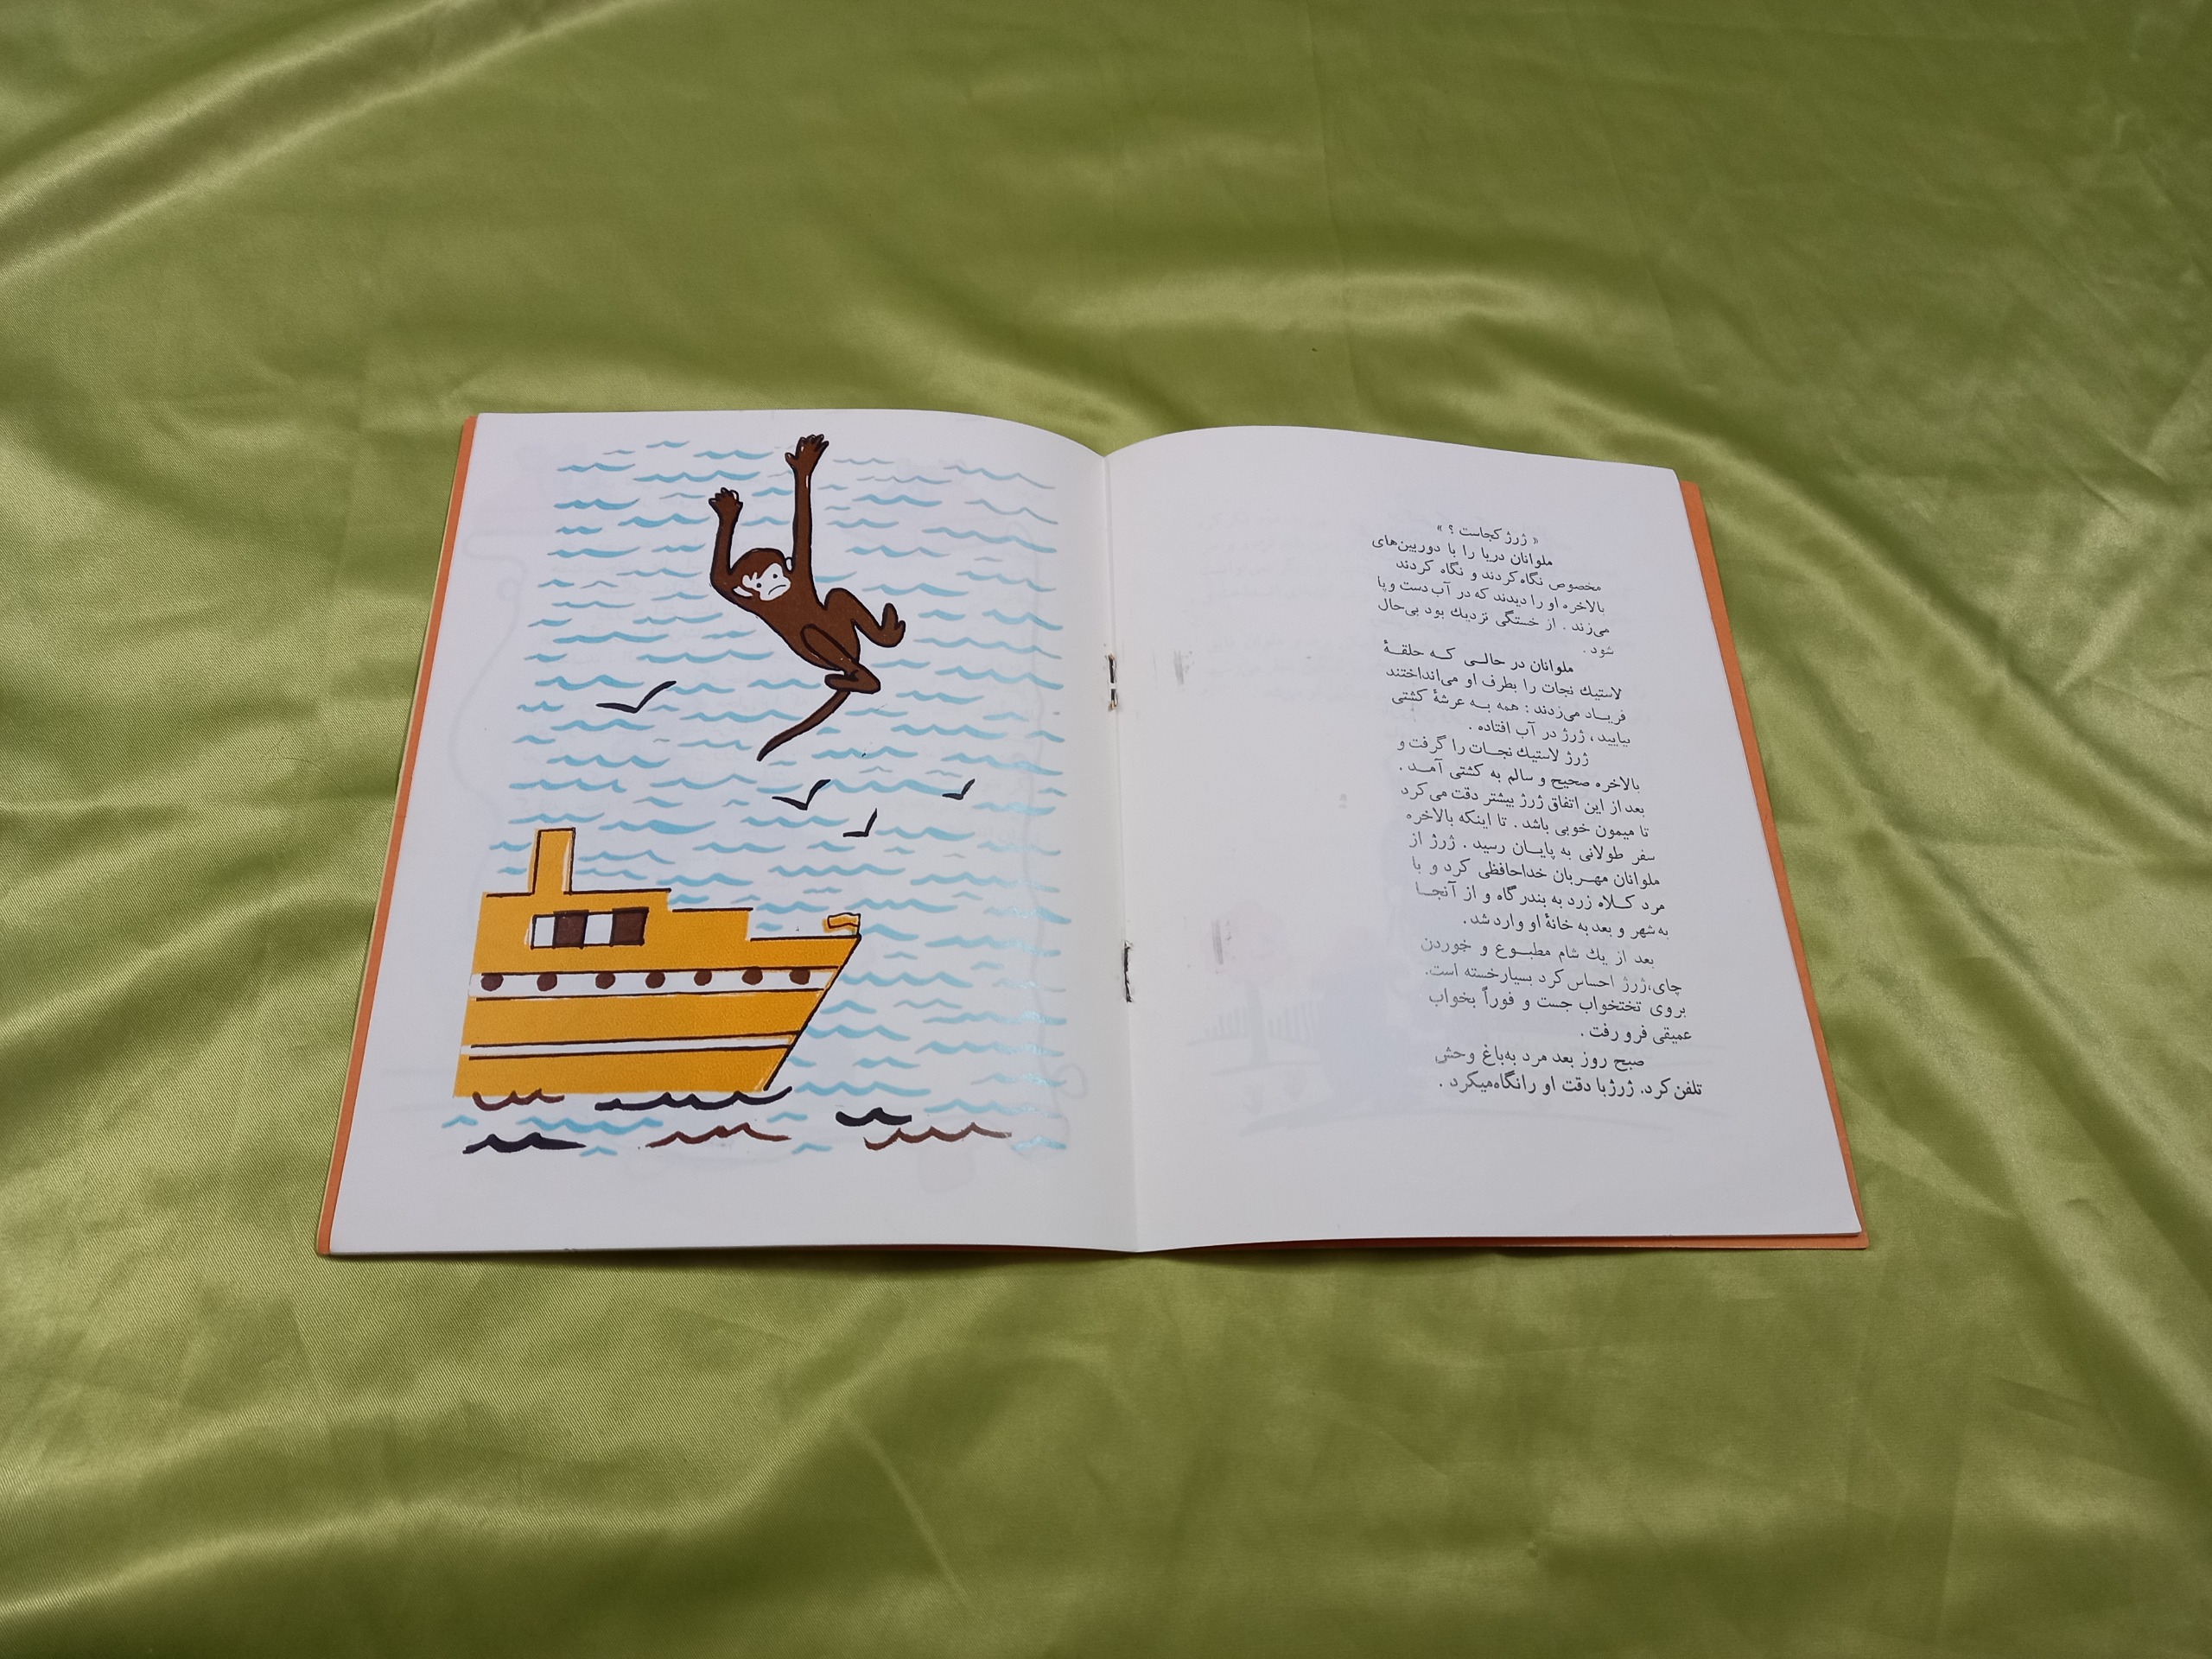 « ژرژ کجاست ؟ »
ملوانان دریا را با دوربین‌های
مخصوص نگاه کردند و نگاه کردند
بالاخره او را دیدند که در آب دست وپا
می‌زند . از خستگی نزدیك بود بی‌حال
شود .
ملوانان در حالــی کــه حلقــهٔ
لاستیك نجات را بطرف او می‌انداختند
فریــاد می‌زدند : همه بــه عرشهٔ کشتی
بیایید ، ژرژ در آب افتاده .
ژرژ لاستیك نجــات را گرفت و
بالاخره صحیح و سالم به کشتی آمــد .
بعد از این اتفاق ژرژ بیشتر دقت می‌کرد
تا میمون خوبی باشد . تا اینکه بالاخره
سفر طولانی به پایــان رسید . ژرژ از
ملوانان مهــربان خداحافظی کرد و با
مرد کــلاه زرد به بندر گاه و از آنجــا
به شهر و بعد به خانهٔ او وارد شد .
بعد از یك شام مطبــوع و خوردن
چای،ژرژ احساس کرد بسیارخسته است.
بروی تختخواب جست و فوراً بخواب
عمیقی فرو رفت .
صبح روز بعد مرد به‌باغ وحش
تلفن کرد. ژرژبا دقت او رانگاه‌میکرد .